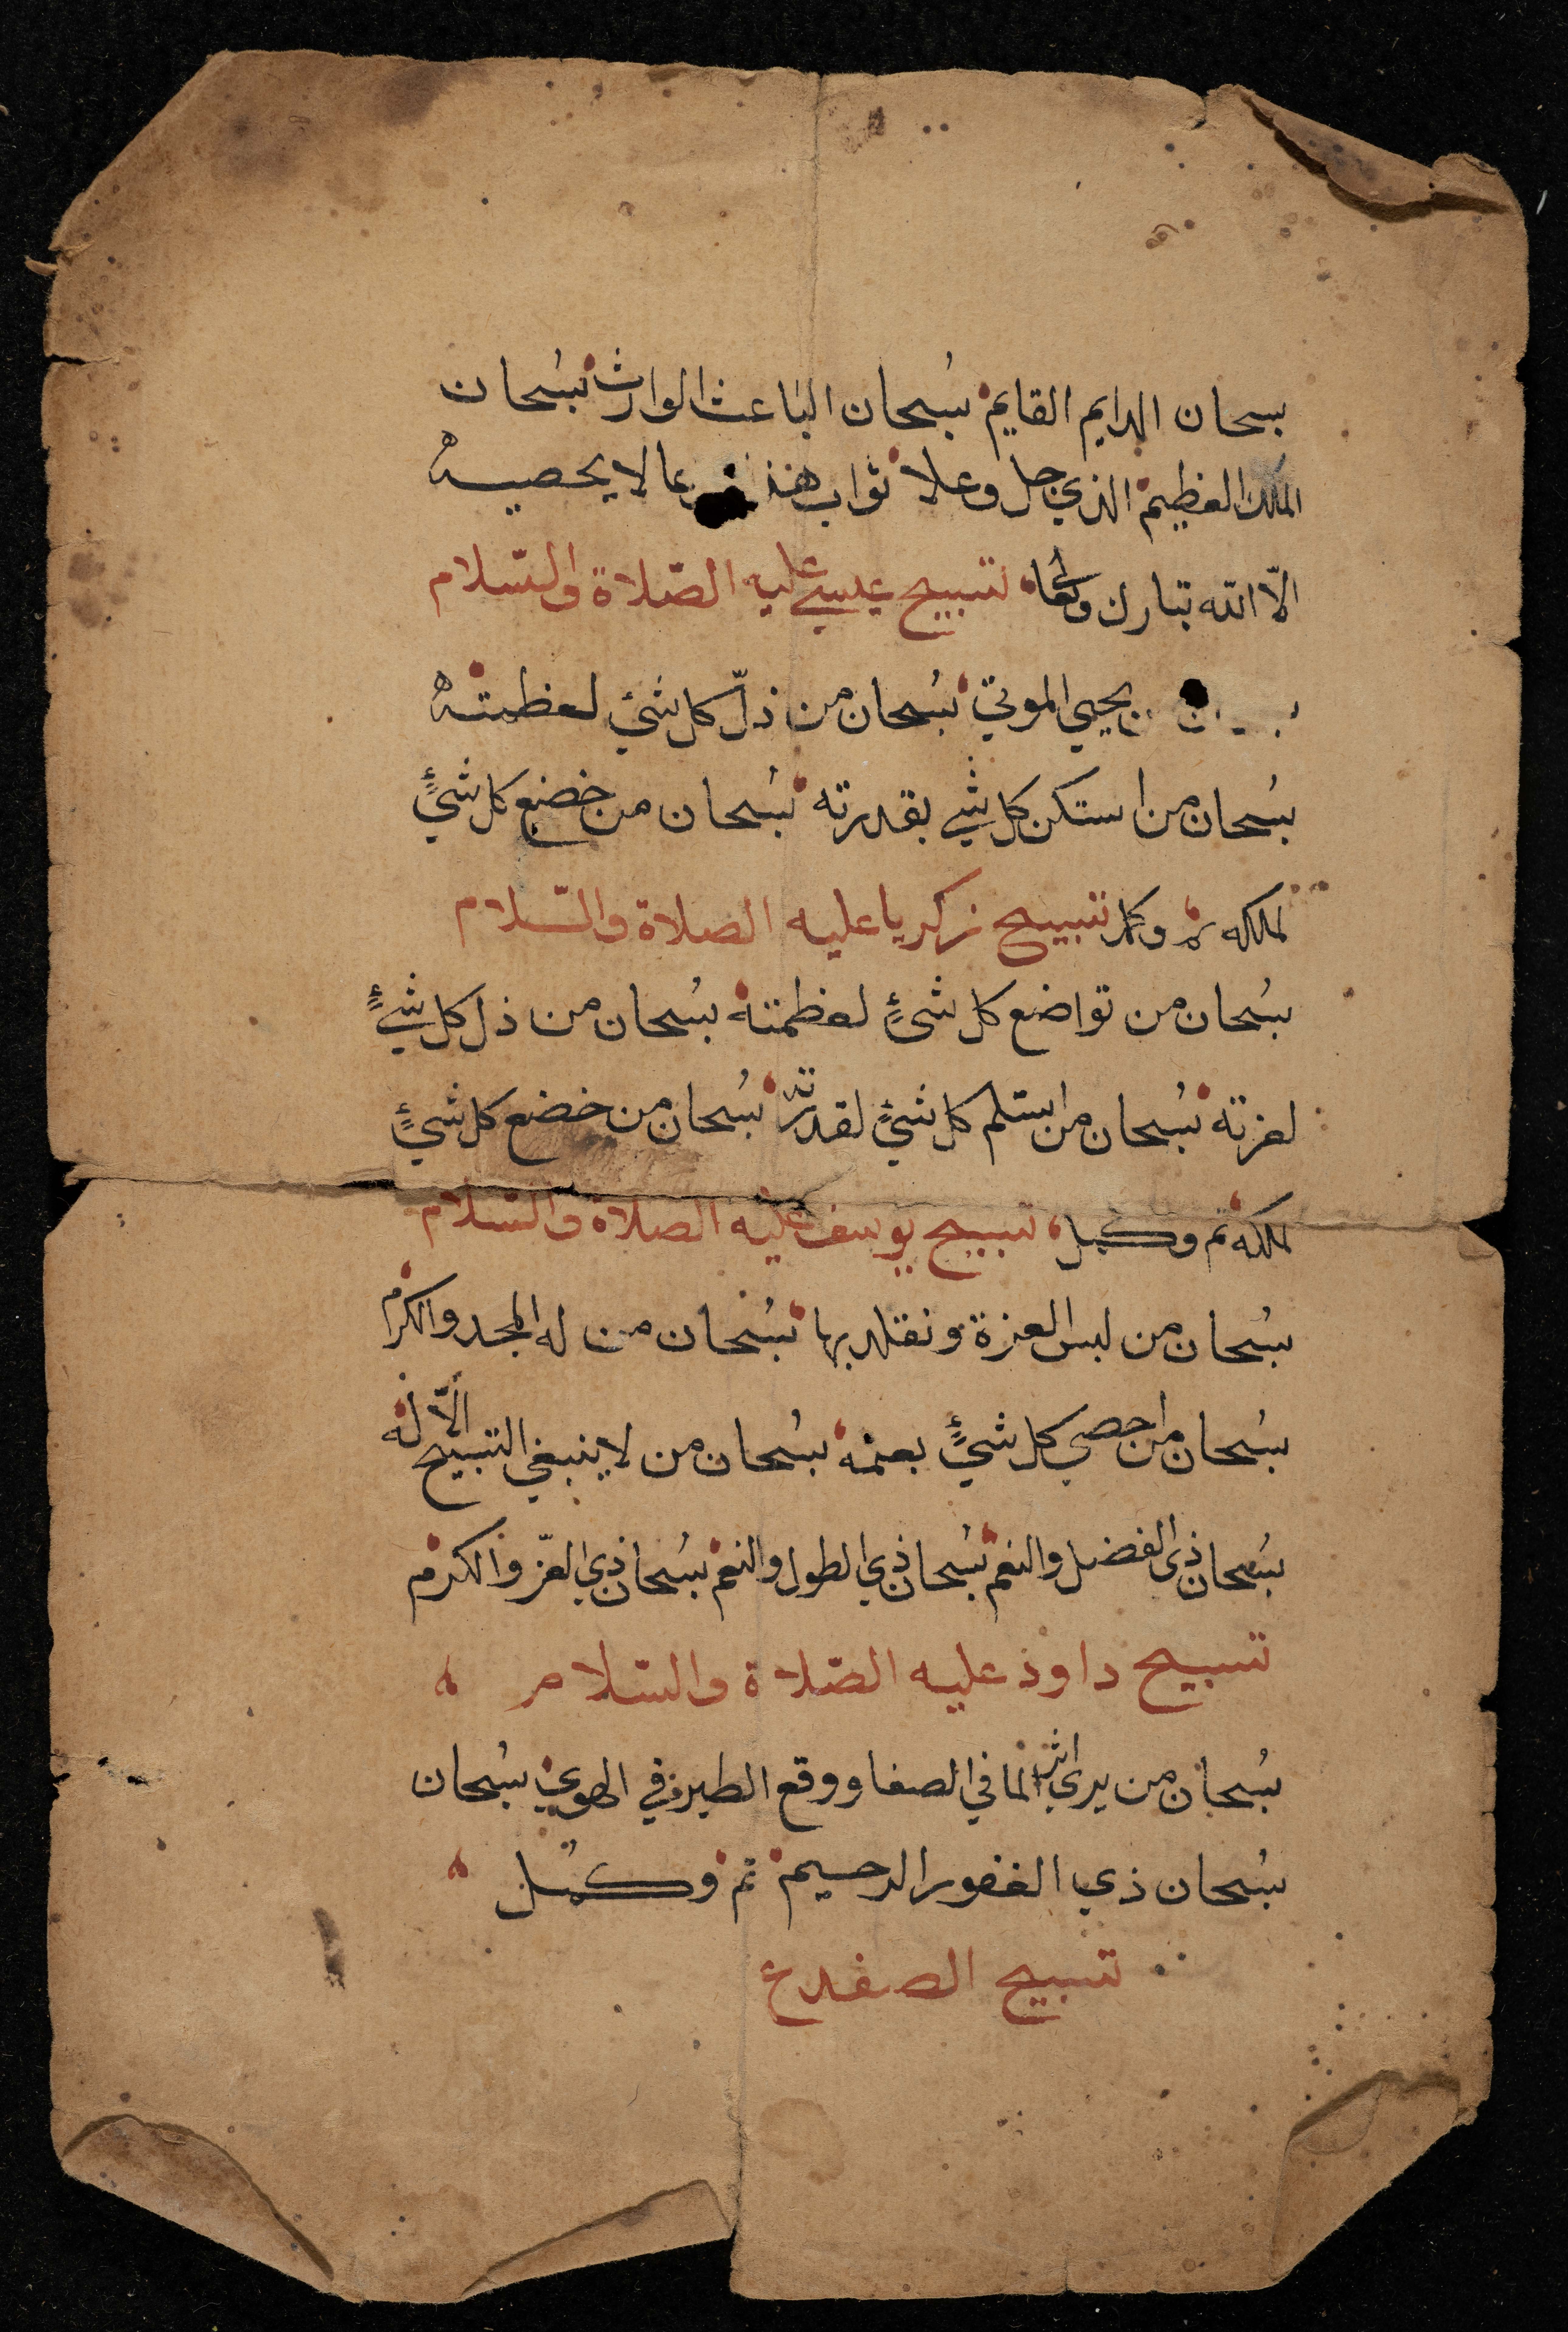 سبحان الدايم القايم سُبحان الباعث الوارث سُبحان
الملك العظيم الذي جل وعلا ثواب هذا مما لا يحصيه
الّا الله تبارك وتعالى تسبيح عيسى عليه الصّلاة والسّلام
يحيي الموتي سُبحان من ذلّ كل شئ لعظمته
سُبحان من استكن كل شي بقدرته سُبحان من خضع كل شئٍ
لملكه تم وكمل تسبيح زكريا عليه الصلاة والسّلام
سُبحان من تواضع كل شئٍ لعظمته سُبحان من ذل كل شئٍ
لعزته سُبحان من استسلم كل شئٍ لقدرته سُبحان من خضع كل شئٍ
لملكه تم وكمل تسبيح يوسف عليه الصلاة والسّلام
سُبحان من لبس العزة وتقلد بها سُبحان من له المجد والكرم
سُبحان من احصي كل شئٍ بعلمه سُبحان من لا ينبغي التسبيح الّا له
سُبحان ذي الفضل والنعم سُبحان ذي الطول والنعم سُبحان ذي العزّ والكرم
تسبيح داوذ عليه الصّلاة والسّلام
سُبحان من يري اثر الما في الصفا ووقع الطير في الهوي سُبحان
سُبحان ذي الغفور الرحيم تم وكمل
تسبيح الصفدع